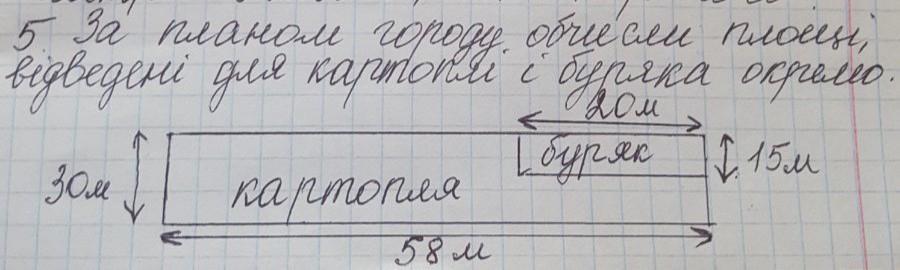 5. За планом городу обчисли площі,
відведені для картоплі і буряка окремо.
20м
буряк
15м
30м
картопля
58 м